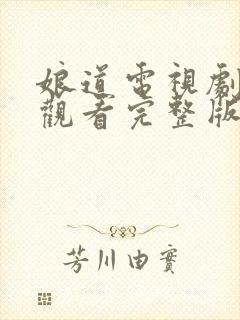 娘道電視劇
觀看完整版
芳川由實